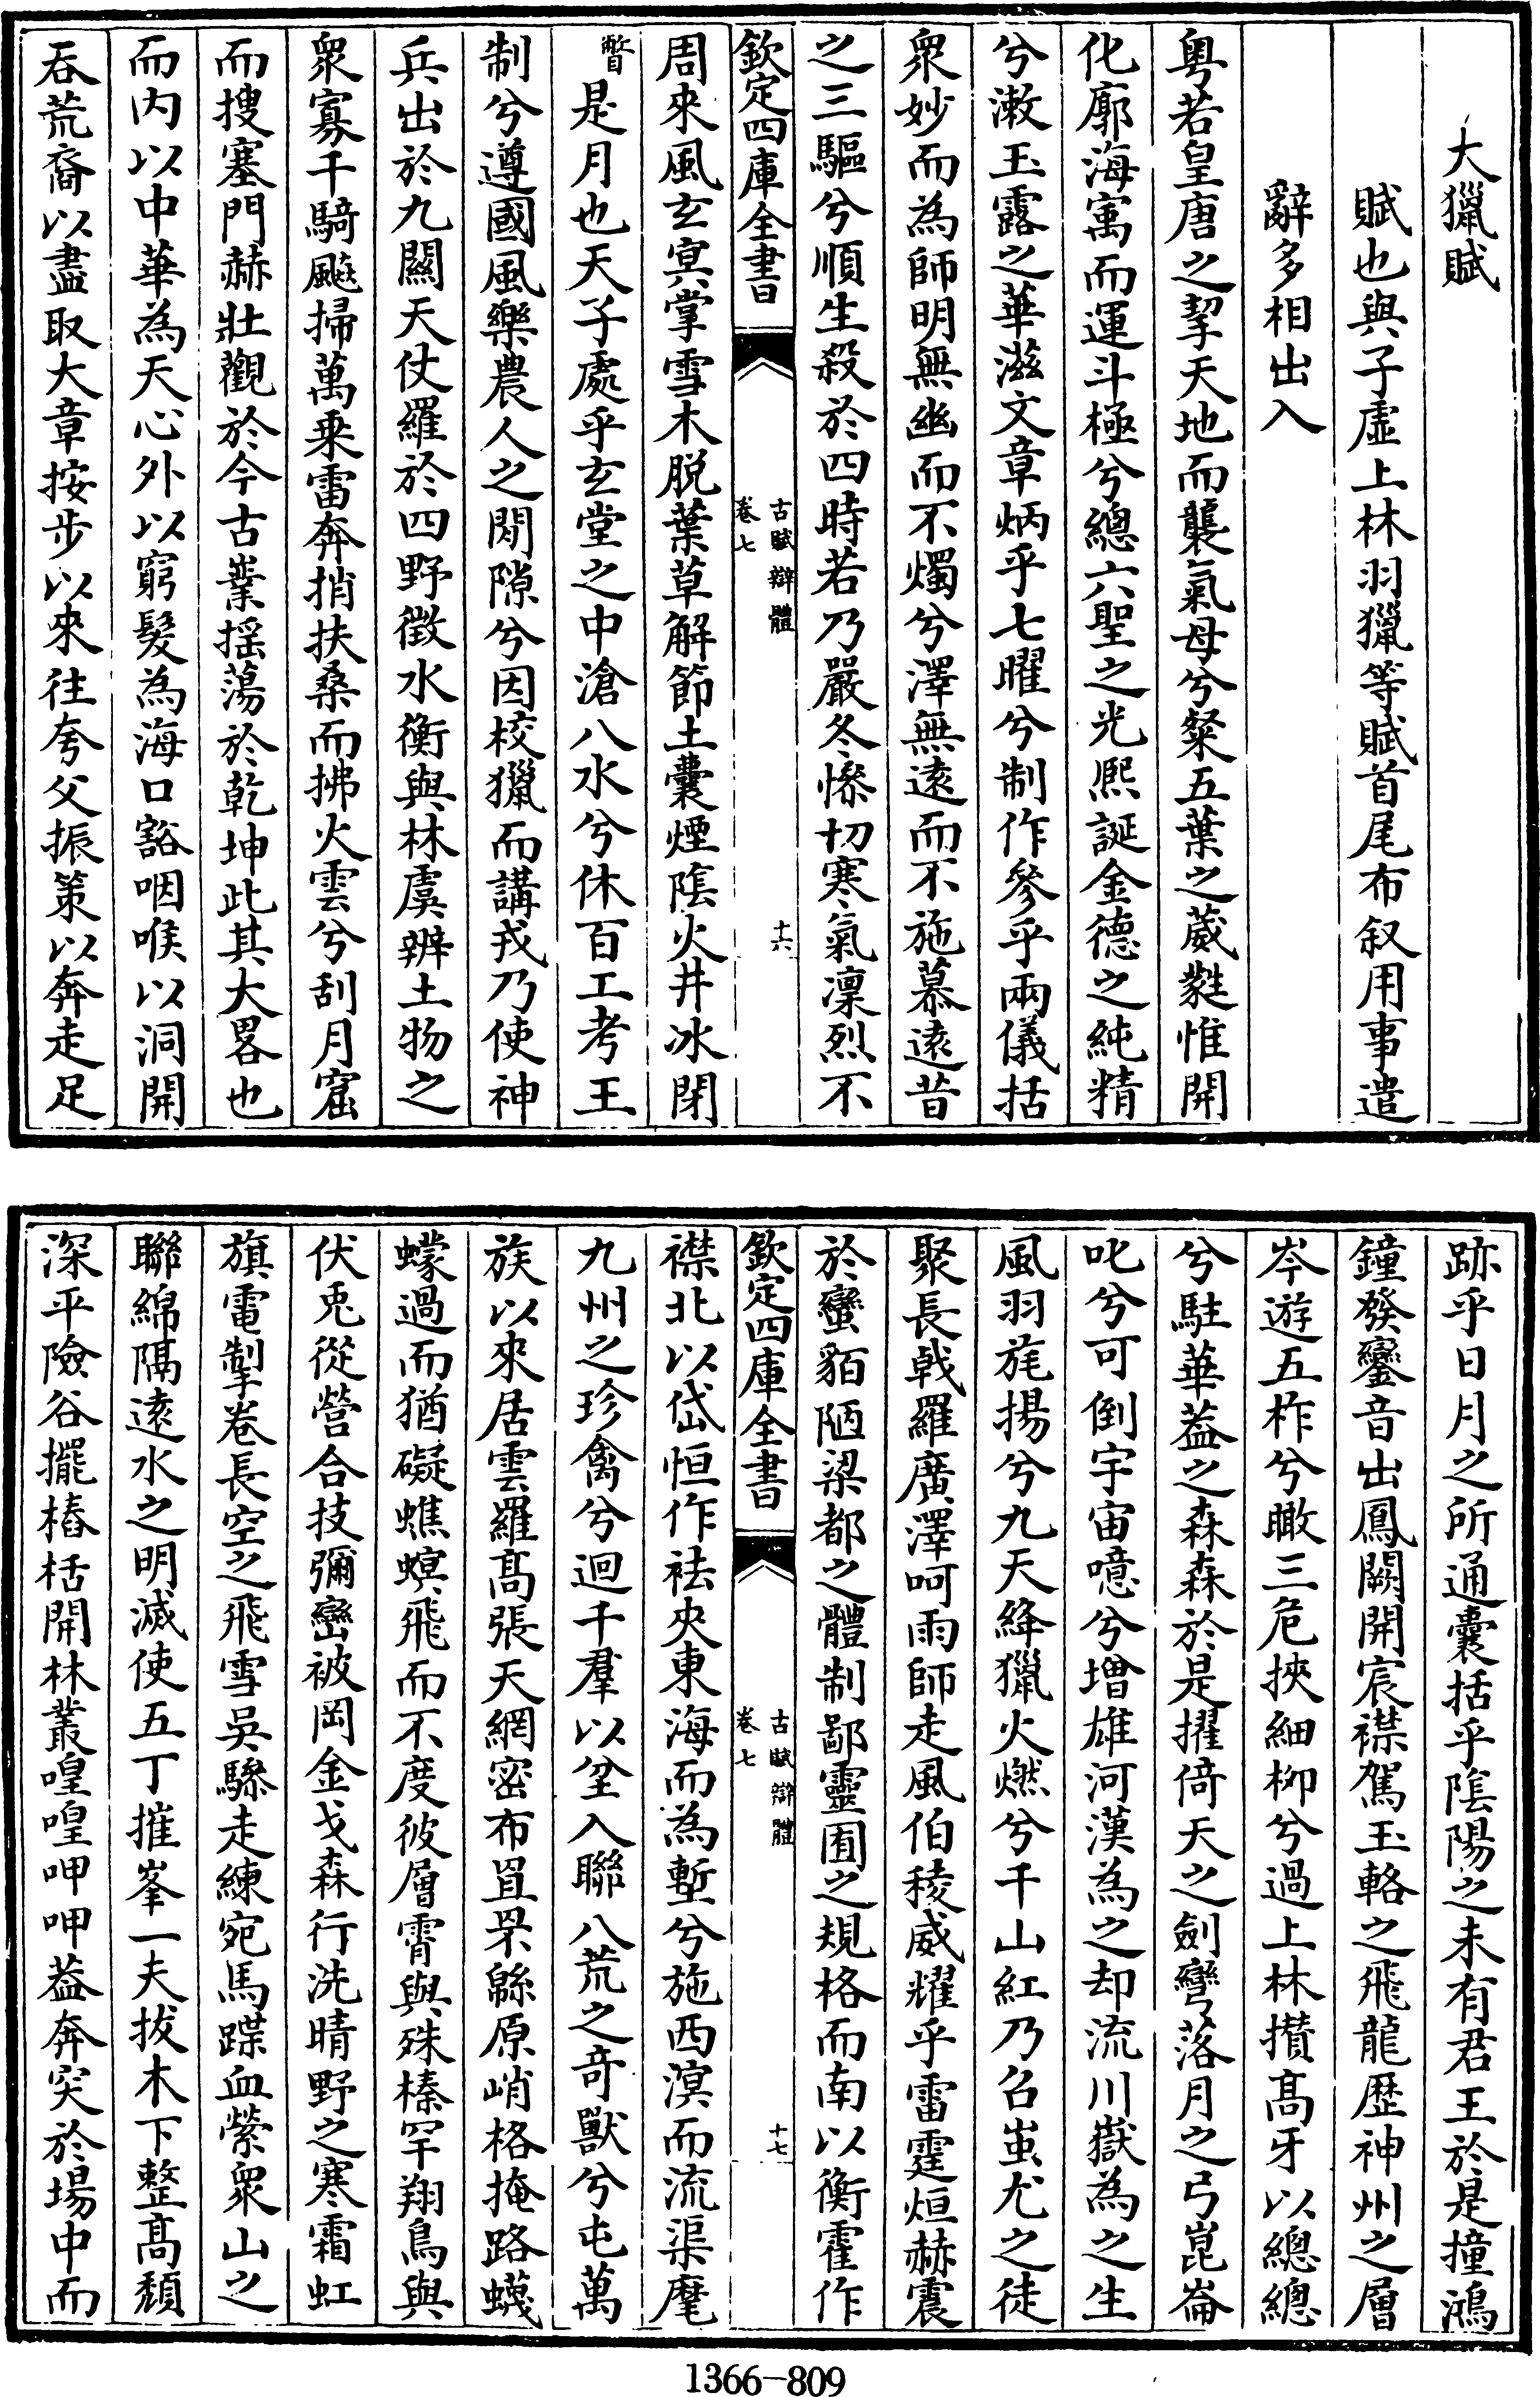 大獵賦
賦也與子虛上林羽獵等賦首尾布叙用事遣
辭多相出入
粤若皇唐之挈天地而襲氣母兮粲五葉之葳蕤惟開
化廓海寓而運斗極兮總六聖之光熙誕金德之純精
兮漱玉露之華滋文章炳乎七曜兮制作參乎兩儀括
衆妙而為師明無幽而不燭兮澤無逺而不施慕逺昔
之三驅兮順生殺於四時若乃嚴冬慘切寒氣凜烈不
欽定四庫全書
古賦辯體
卷七
十六
周來風玄冥掌雪木脱葉草解節土囊煙隂火井冰閉
是月也天子處乎玄堂之中滄八水兮休百工考王
暬
制兮遵國風樂農人之閒隙兮因校獵而講戎乃使神
兵出於九闕天仗羅於四野徴水衡與林虞辨土物之
衆寡千騎飈掃萬乗雷奔捎扶桑而拂火雲兮刮月窟
而搜塞門赫壯觀於今古業揺蕩於乾坤此其大畧也
而内以中華為天心外以窮髮為海口豁咽喉以洞開
吞荒裔以盡取大章按步以來往夸父振策以奔走足
跡乎日月之所通囊括乎隂陽之未有君王於是撞鴻
鐘發鑾音出鳳闕開宸襟駕玉輅之飛龍歴神州之層
岑遊五柞兮瞰三危挾細柳兮過上林攅髙牙以總總
兮駐華葢之森森於是擢倚天之劍彎落月之弓崑崙
叱兮可倒宇宙噫兮增雄河漢為之却流川嶽為之生
風羽旄揚兮九天絳獵火燃兮千山紅乃召蚩尤之徒
聚長戟羅廣澤呵雨師走風伯稜威耀乎雷霆烜赫震
於蠻貊陋梁都之體制鄙靈囿之規格而南以衡霍作
欽定四庫全書
古賦辯體
卷七
十七
襟北以岱恒作袪夾東海而為塹兮拖西溟而流渠麾
九州之珍禽兮迴千羣以坌入聯八荒之竒獸兮屯萬
族以來居雲羅髙張天網密布罝罘緜原峭格掩路蠛
蠓過而猶礙蟭螟飛而不度彼層霄與殊榛罕翔鳥與
伏兎從營合技彌巒被岡金戈森行洗晴野之寒霜虹
旗電掣卷長空之飛雪吳驂走練宛馬蹀血縈衆山之
聯綿隔逺水之明滅使五丁摧峯一夫拔木下整髙頽
深平險谷擺樁栝開林叢喤喤呷呷葢奔突於場中而
1366-809